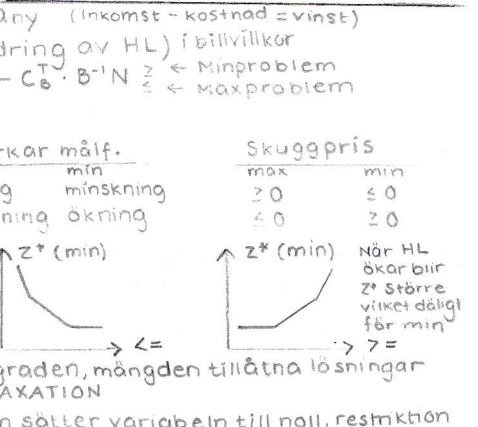 any (Inkomst - kostnad = vinst)
dring av HL) i bivillkor
- C_B^T · B⁻¹N ≥ ← Minproblem
≤ ← Maxproblem
rkar målf. Skuggpris
min max min
g minskning ≥ 0 ≤ 0
ning ökning ≤ 0 ≥ 0
z* (min) z* (min) När HL
ökar blir
z* större
vilket dåligt
för min
<= >=
graden, mängden tillåtna lösningar
AXATION
n sätter variabeln till noll, restriktion